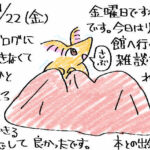 /22(金)
金曜日です
です。今日は
館へ行
雑談
ログに
きなくて
と
きぶ
きる
して 良かったです。
本との出会